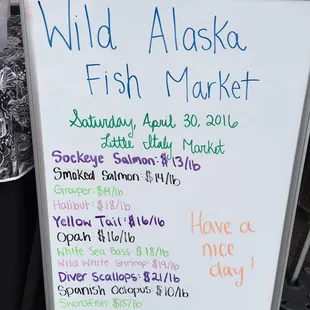 Wild Alaska
Fish Market
Saturday, April 30, 2016
Little Italy Market
Sockeye Salmon: $13/lb
Smoked Salmon: $14/lb
Grouper: $19/lb
Halibut: $18/lb
Yellow Tail: $16/lb
Opah: $16/lb
White Sea Bass $18/lb
Wild White Shrimp: $19/lb
Diver Scallops: $21/lb
Spanish Octopus: $10/lb
Swordfish: $15/lb
Have a
nice
day!